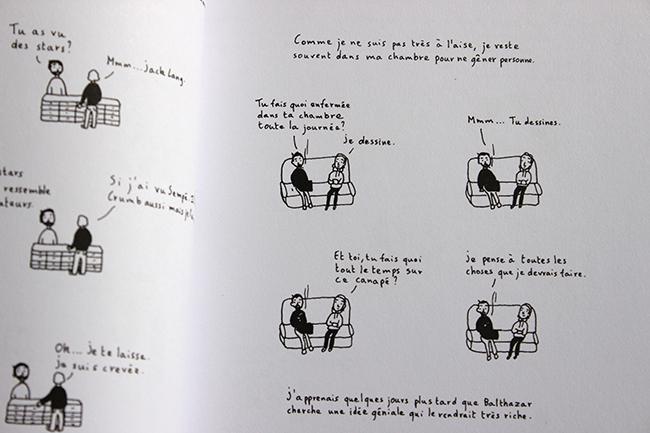 Tu as vu
des stars?
Mmm... Jack Lang.
stars
ressemble
ateurs.
Si j'ai vu Sempé
Crumb aussi mais
Oh... je te laisse.
je suis crevée.
Comme je ne suis pas très à l'aise, je reste
souvent dans ma chambre pour ne gêner personne.
Tu fais quoi enfermée
dans ta chambre
toute la journée?
je dessine.
Mmm... Tu dessines.
Et toi, tu fais quoi
tout le temps sur
ce canapé?
je pense à toutes les
choses que je devrais faire.
j'apprenais quelques jours plus tard que Balthazar
cherche une idée géniale qui le rendrait très riche.